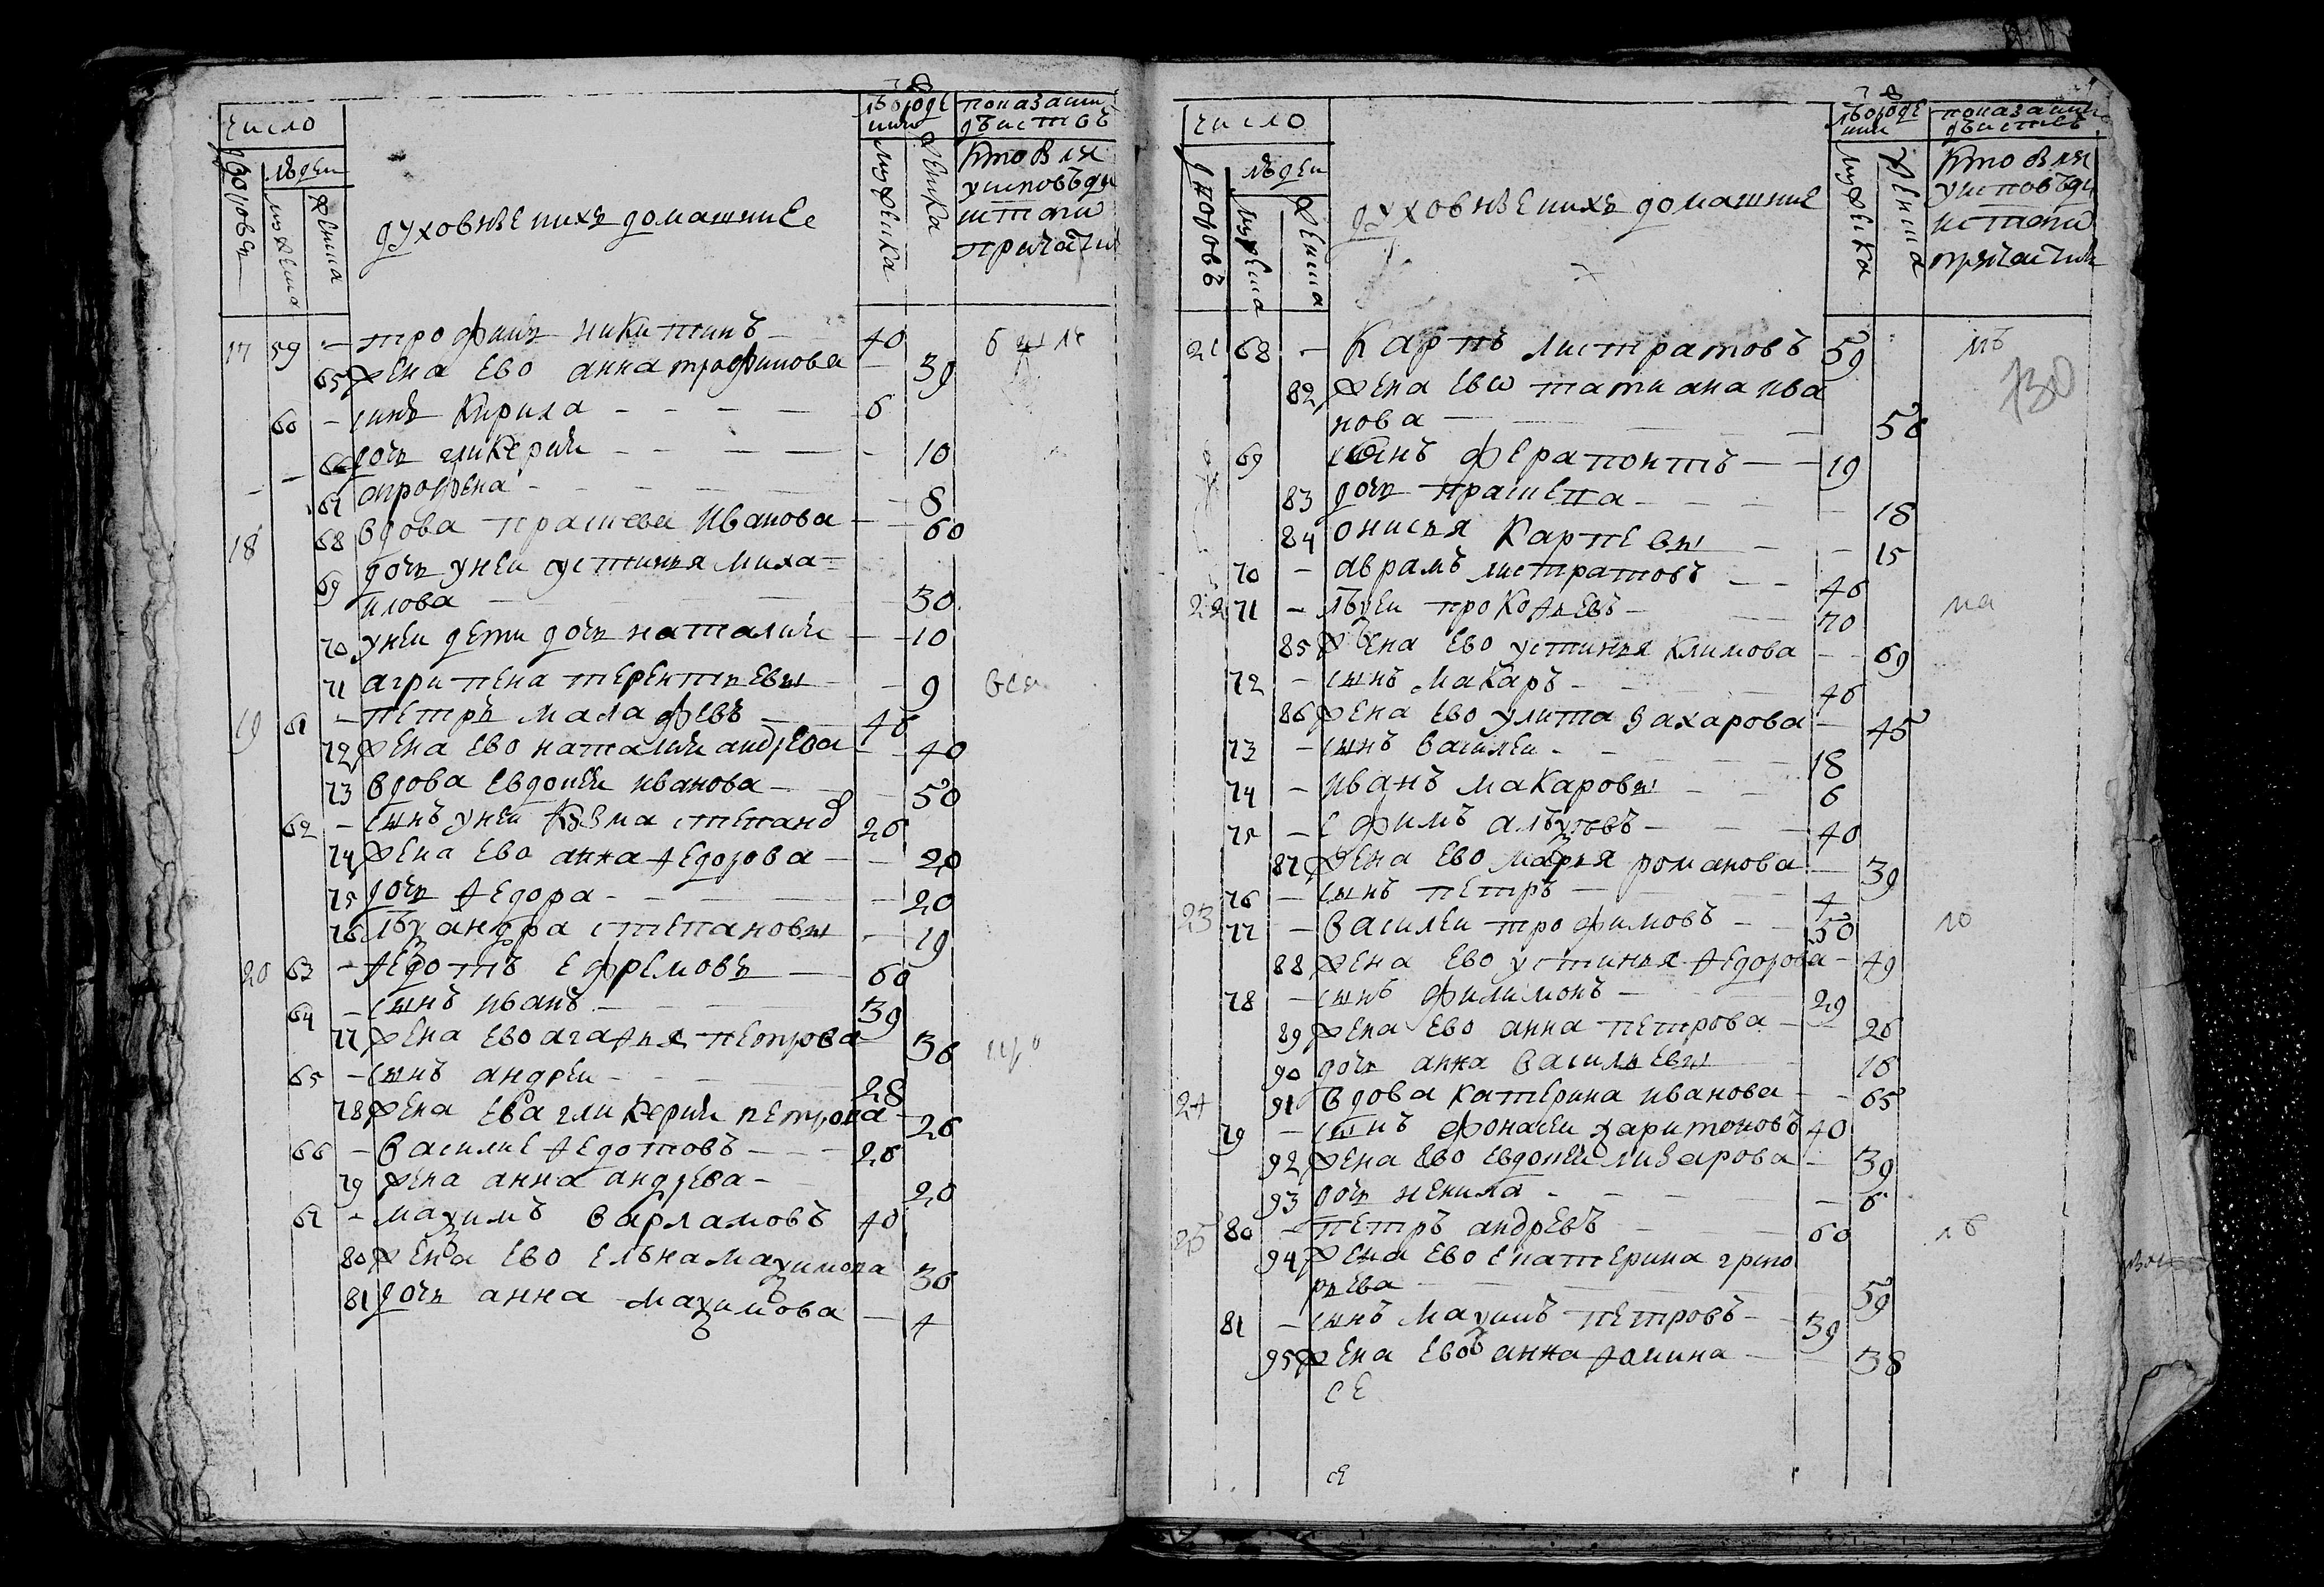 число
дворовъ
людеи
мужеска
женска
духовные и ихъ домашние
лѣ от рожде
ния
мужеска
женска
показание
дѣиствъ
кто былъ
у исповѣди
и святаго
причастия
17 59 – трофимъ никитинъ – 40
65 жена ево анна трофимова – 39
60 – сынъ кирила – – – – 6
66 дочь гликерия – – – – – 10
67 аграфена – – – – – 8
18 68 вдова прасковея иванова – – 60
69 дочь у неи устинья миха=
илова – – – 30
70 у неи дети дочь наталия – – 10
71 агрипена терентьевы – – 9
19 61 – петръ малафевъ – – 46
72 жена ево наталия андрева – – 40
73 вдова евдокия иванова – – – 50
62 – сынъ у неи козма степановъ 26
74 жена ево анна ѳедорова – – 20
75 дочь ѳедора – – – – – 20
76 александра степановы – 19
20 63 – ѳедотъ ефремовъ – 60
64 – сынъ иванъ – – – 39
77 жена ево агаѳья петрова 36
65 – сынъ андреи – – – 28
78 жена ева гликерия петрова – 26
66 – василие ѳедотовъ – – – 26
79 жена анна андрева – 20
67 – маѯимъ варламовъ 40
80 жена ево елена маѯимова 36
81 дочь анна маѯимова – 4
число
дворовъ
людеи
мужеска
женска
духовные и ихъ домашние
лѣ от рожде
ния
мужеска
женска
показание
дѣиствъ
кто былъ
у исповѣди
и святаго
причастия
130
21 68 – карпъ листратовъ 59
82 жена евѡ татиана ива
нова – – – 58
69 сынъ ферапонтъ – – 19
83 дочь – – – 18
84 онисья карпевы – – 15
70 – аврамъ листратовъ – – 46
22 71 – прокоѳьевъ – – 70
85 жена ево устинья климова – – 69
72 – сынъ макаръ – – – 46
86 жена ево улита захарова – 45
73 – сынъ василеи – – – – 18
74 – иванъ макаровы – – 6
75 – ефимъ алеѯѣевъ – – – 40
87 жена ево марья романова – 39
76 – сынъ петръ – – 4
23 77 – василеи трофимовъ – – 50
88 жена ево устинья ѳедорова – 49
78 – сынъ филимонъ – – 29
89 жена ево анна петрова – – 26
90 дочь анна васильевы – 18
24 91 вдова катерина иванова – – 65
79 – сынъ фонасеи харитоновъ 40
92 жена ево евдокия лазарова – 39
93 дочь ненила – – – – – 6
25 80 – петръ андревъ – – 60
94 жена ево екатерина григо
рьева – – – 59
81 – сынъ маѯимъ петровъ – – 39
95 жена ево анна ѳомина – – 38
се
се